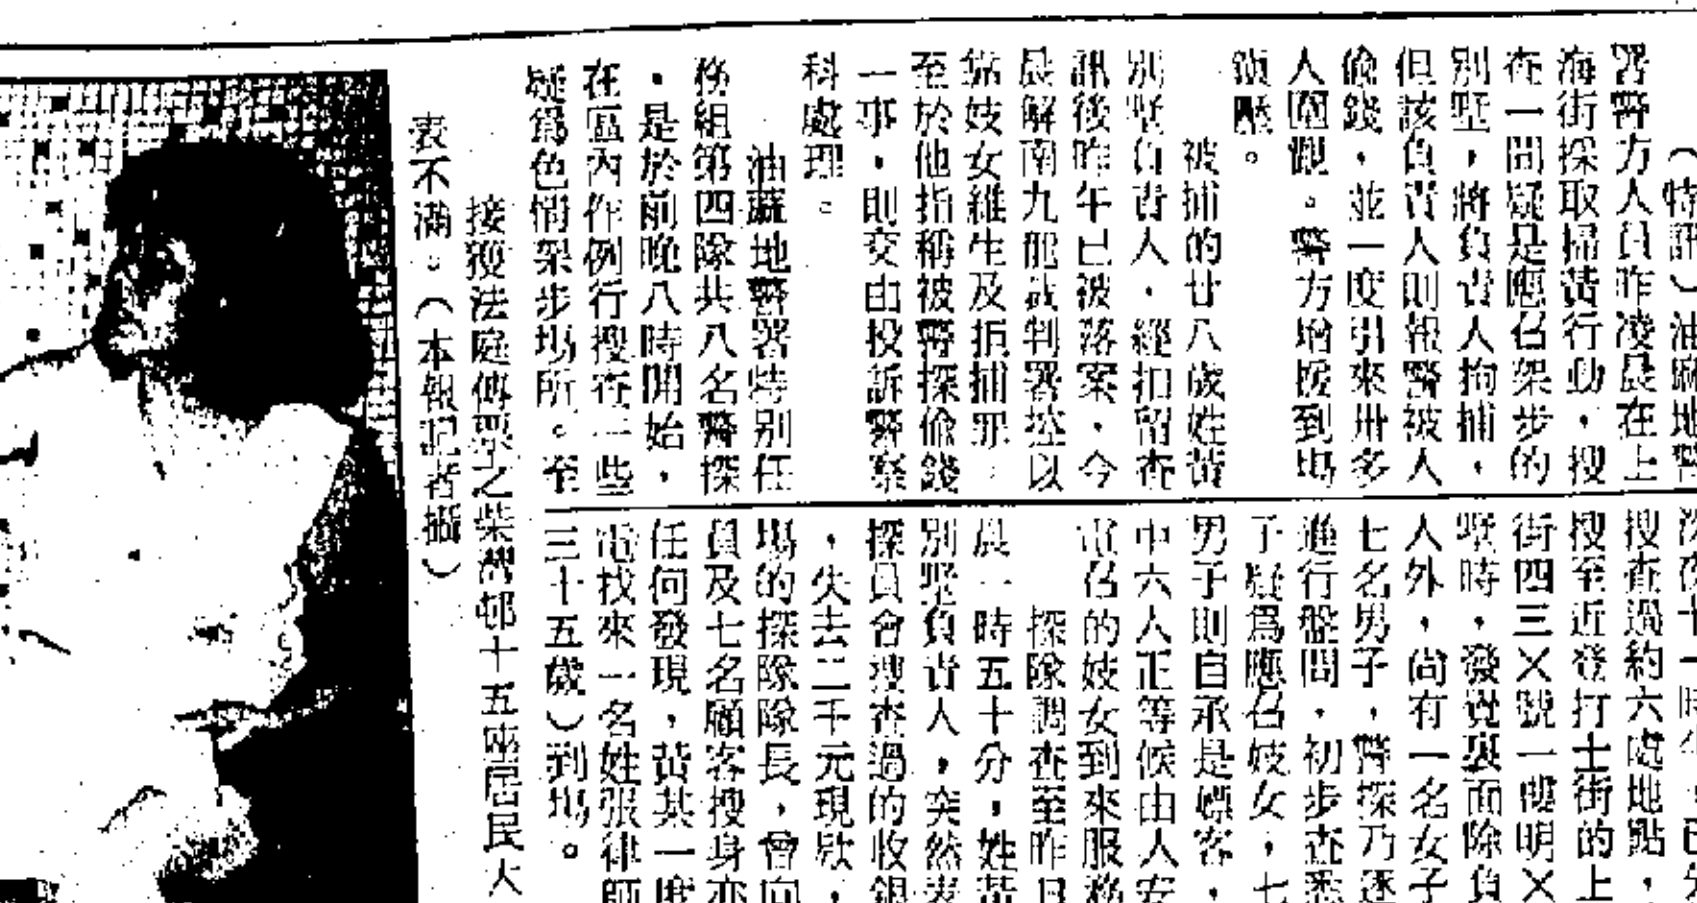 （特訊）油麻地警
署警方人員昨凌晨在上
海街採取掃黃行動，搜
查一間疑是應召架步的
別墅，將負責人拘捕，
但該負責人則報警被人
偷錢，並一度引來卅多
人圍觀。警方增援到場
鎮壓。
被捕的廿八歲姓黃
別墅負責人，經扣留查
訊後昨午已被落案，今
晨解南九龍裁判署控以
靠妓女維生及拒捕罪。
至於他指稱被警探偷錢
一事，則交由投訴警察
科處理。
油蔴地警署特別任
務組第四隊共八名警探
，是於前晚八時開始，
在區內作例行搜查一些
疑為色情架步場所。至
深夜十一時半，已先
搜查過約六處地點，
搜至近登打士街的上
街四三X號一樓明X
墅時，發覺裏面除負
人外，尚有一名女子
七名男子，警探乃逐
進行盤問，初步查悉
子疑為應召妓女，七
男子則自承是嫖客，
中六人正等候由人安
電召的妓女到來服務
探隊調查至昨日
晨一時五十分，姓黃
別墅負責人，突然表
探員會搜查過的收銀
，失去二千元現款，
場的探隊隊長，曾向
員及七名顧客搜身亦
任何發現，黃某一度
電找來一名姓張律師
三十五歲）到場。
接獲法庭傳票之柴灣邨十五座居民大
表不滿。（本報記者攝）